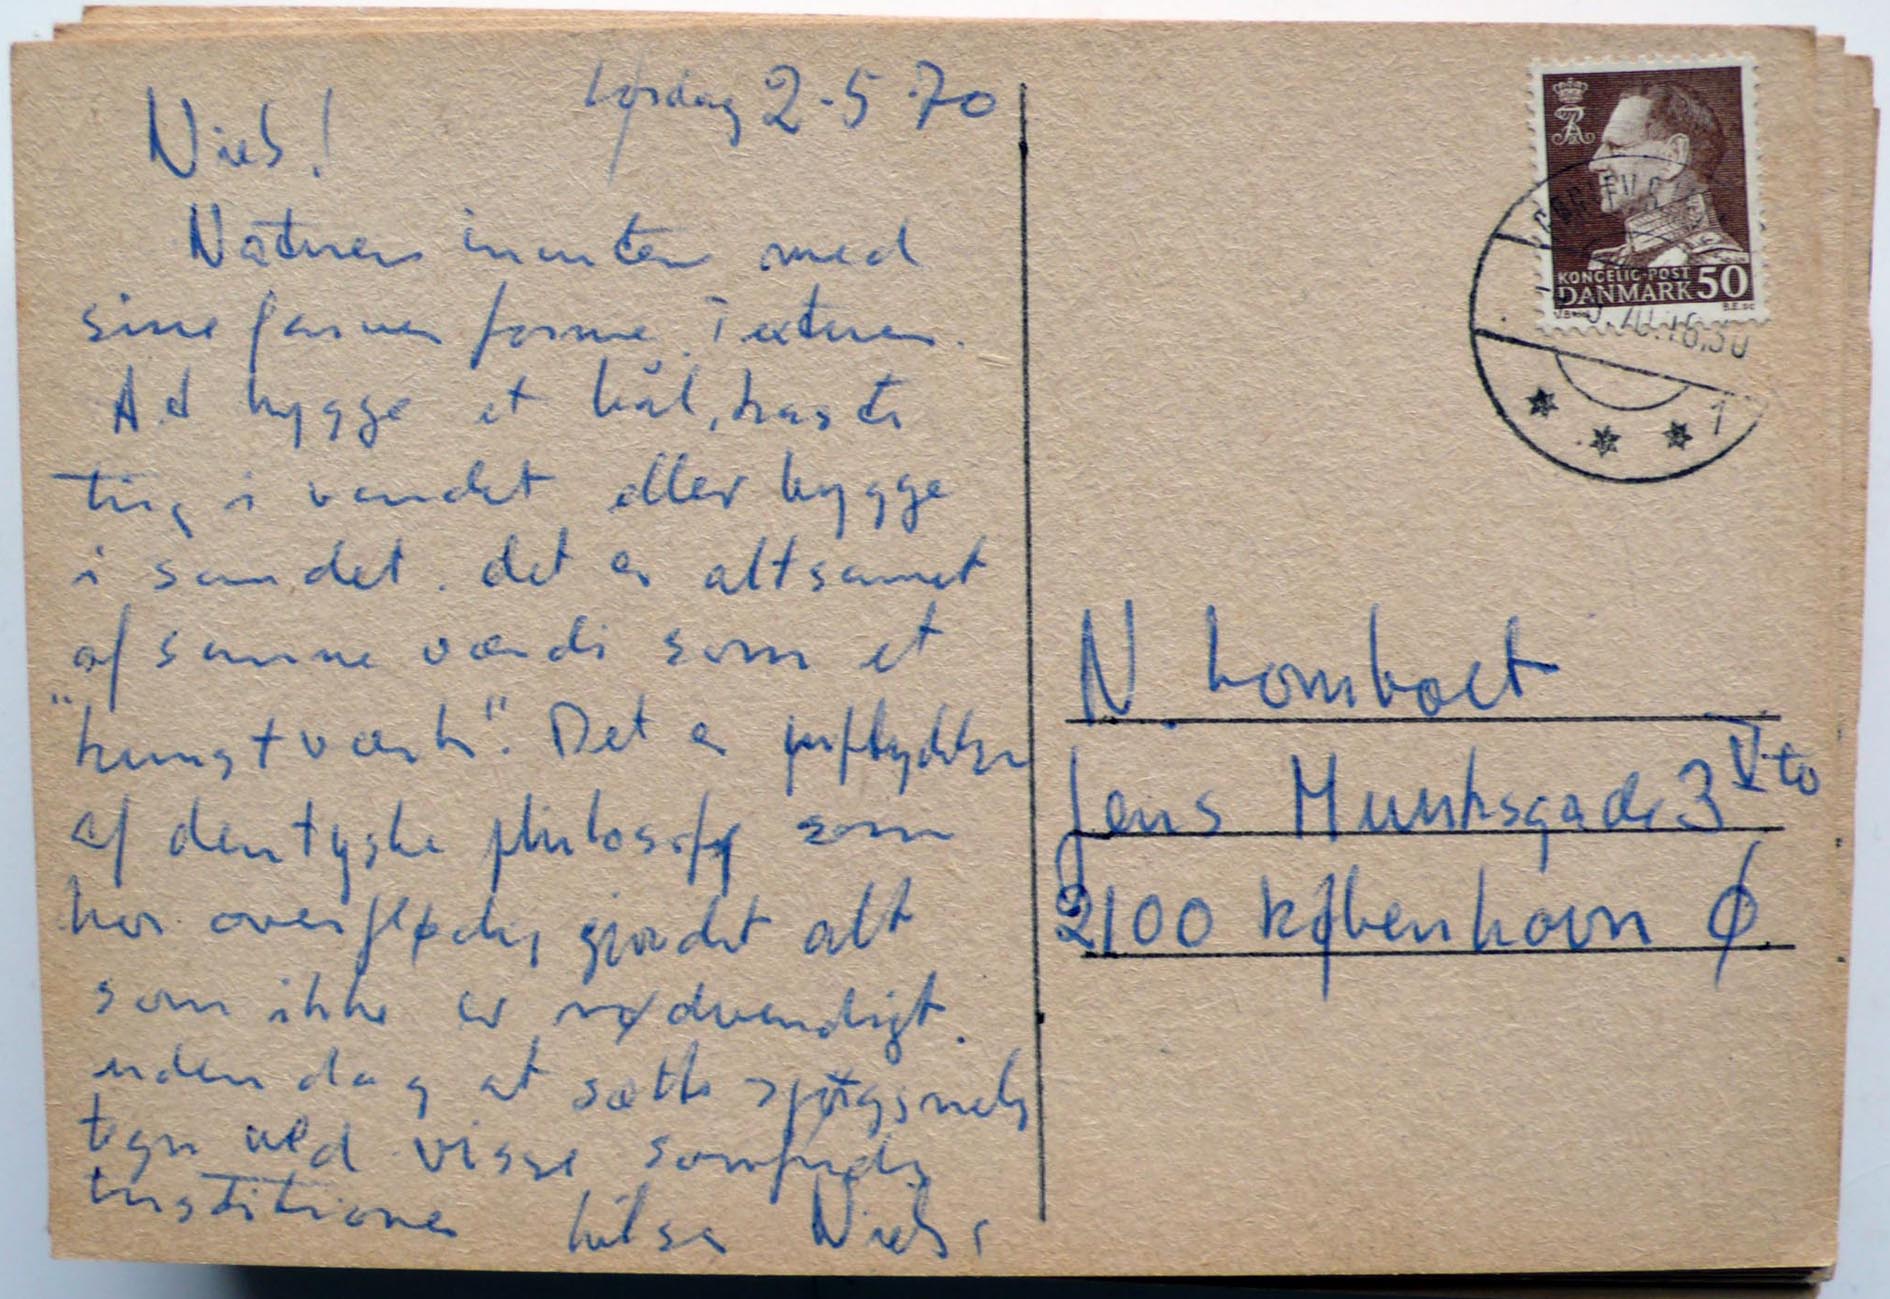 lørdag 2-5-70
Niels!
Naturen inviterer med
sine farver forme. Texturer.
At bygge et bål, kaste
ting i vandet eller bygge
i sandet. det er altsammet
af samme værdi som et
"kunstværk". Det er
af den tyske philosofy som
har overflødig gjordt alt
som ikke er nødvendigt.
uden dog at sætte spørgsmåls
tegn ved visse
institioner hilsen Niels
KONGELIG POST
DANMARK 50
N. Lomholt
Jens Munksgade 3 V.to
2100 København Ø